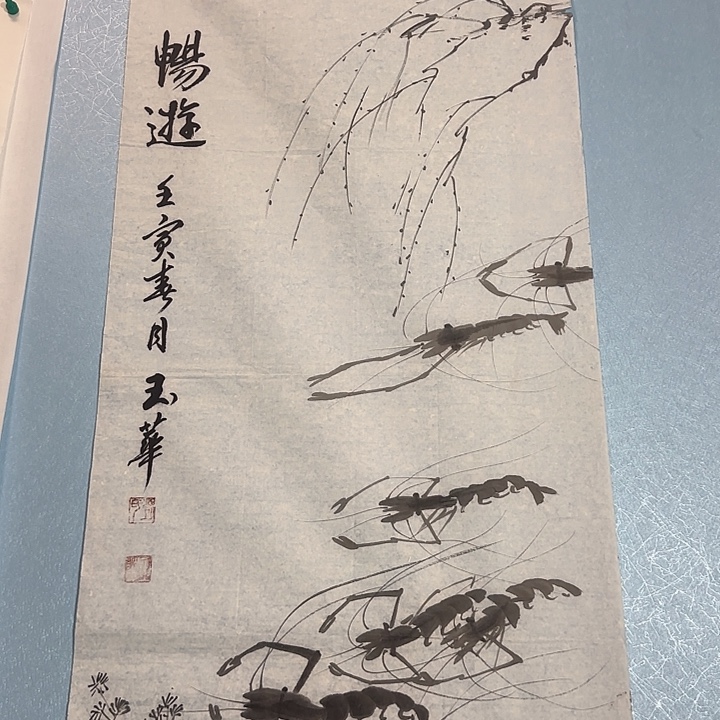 暢遊
壬寅春月
玉華